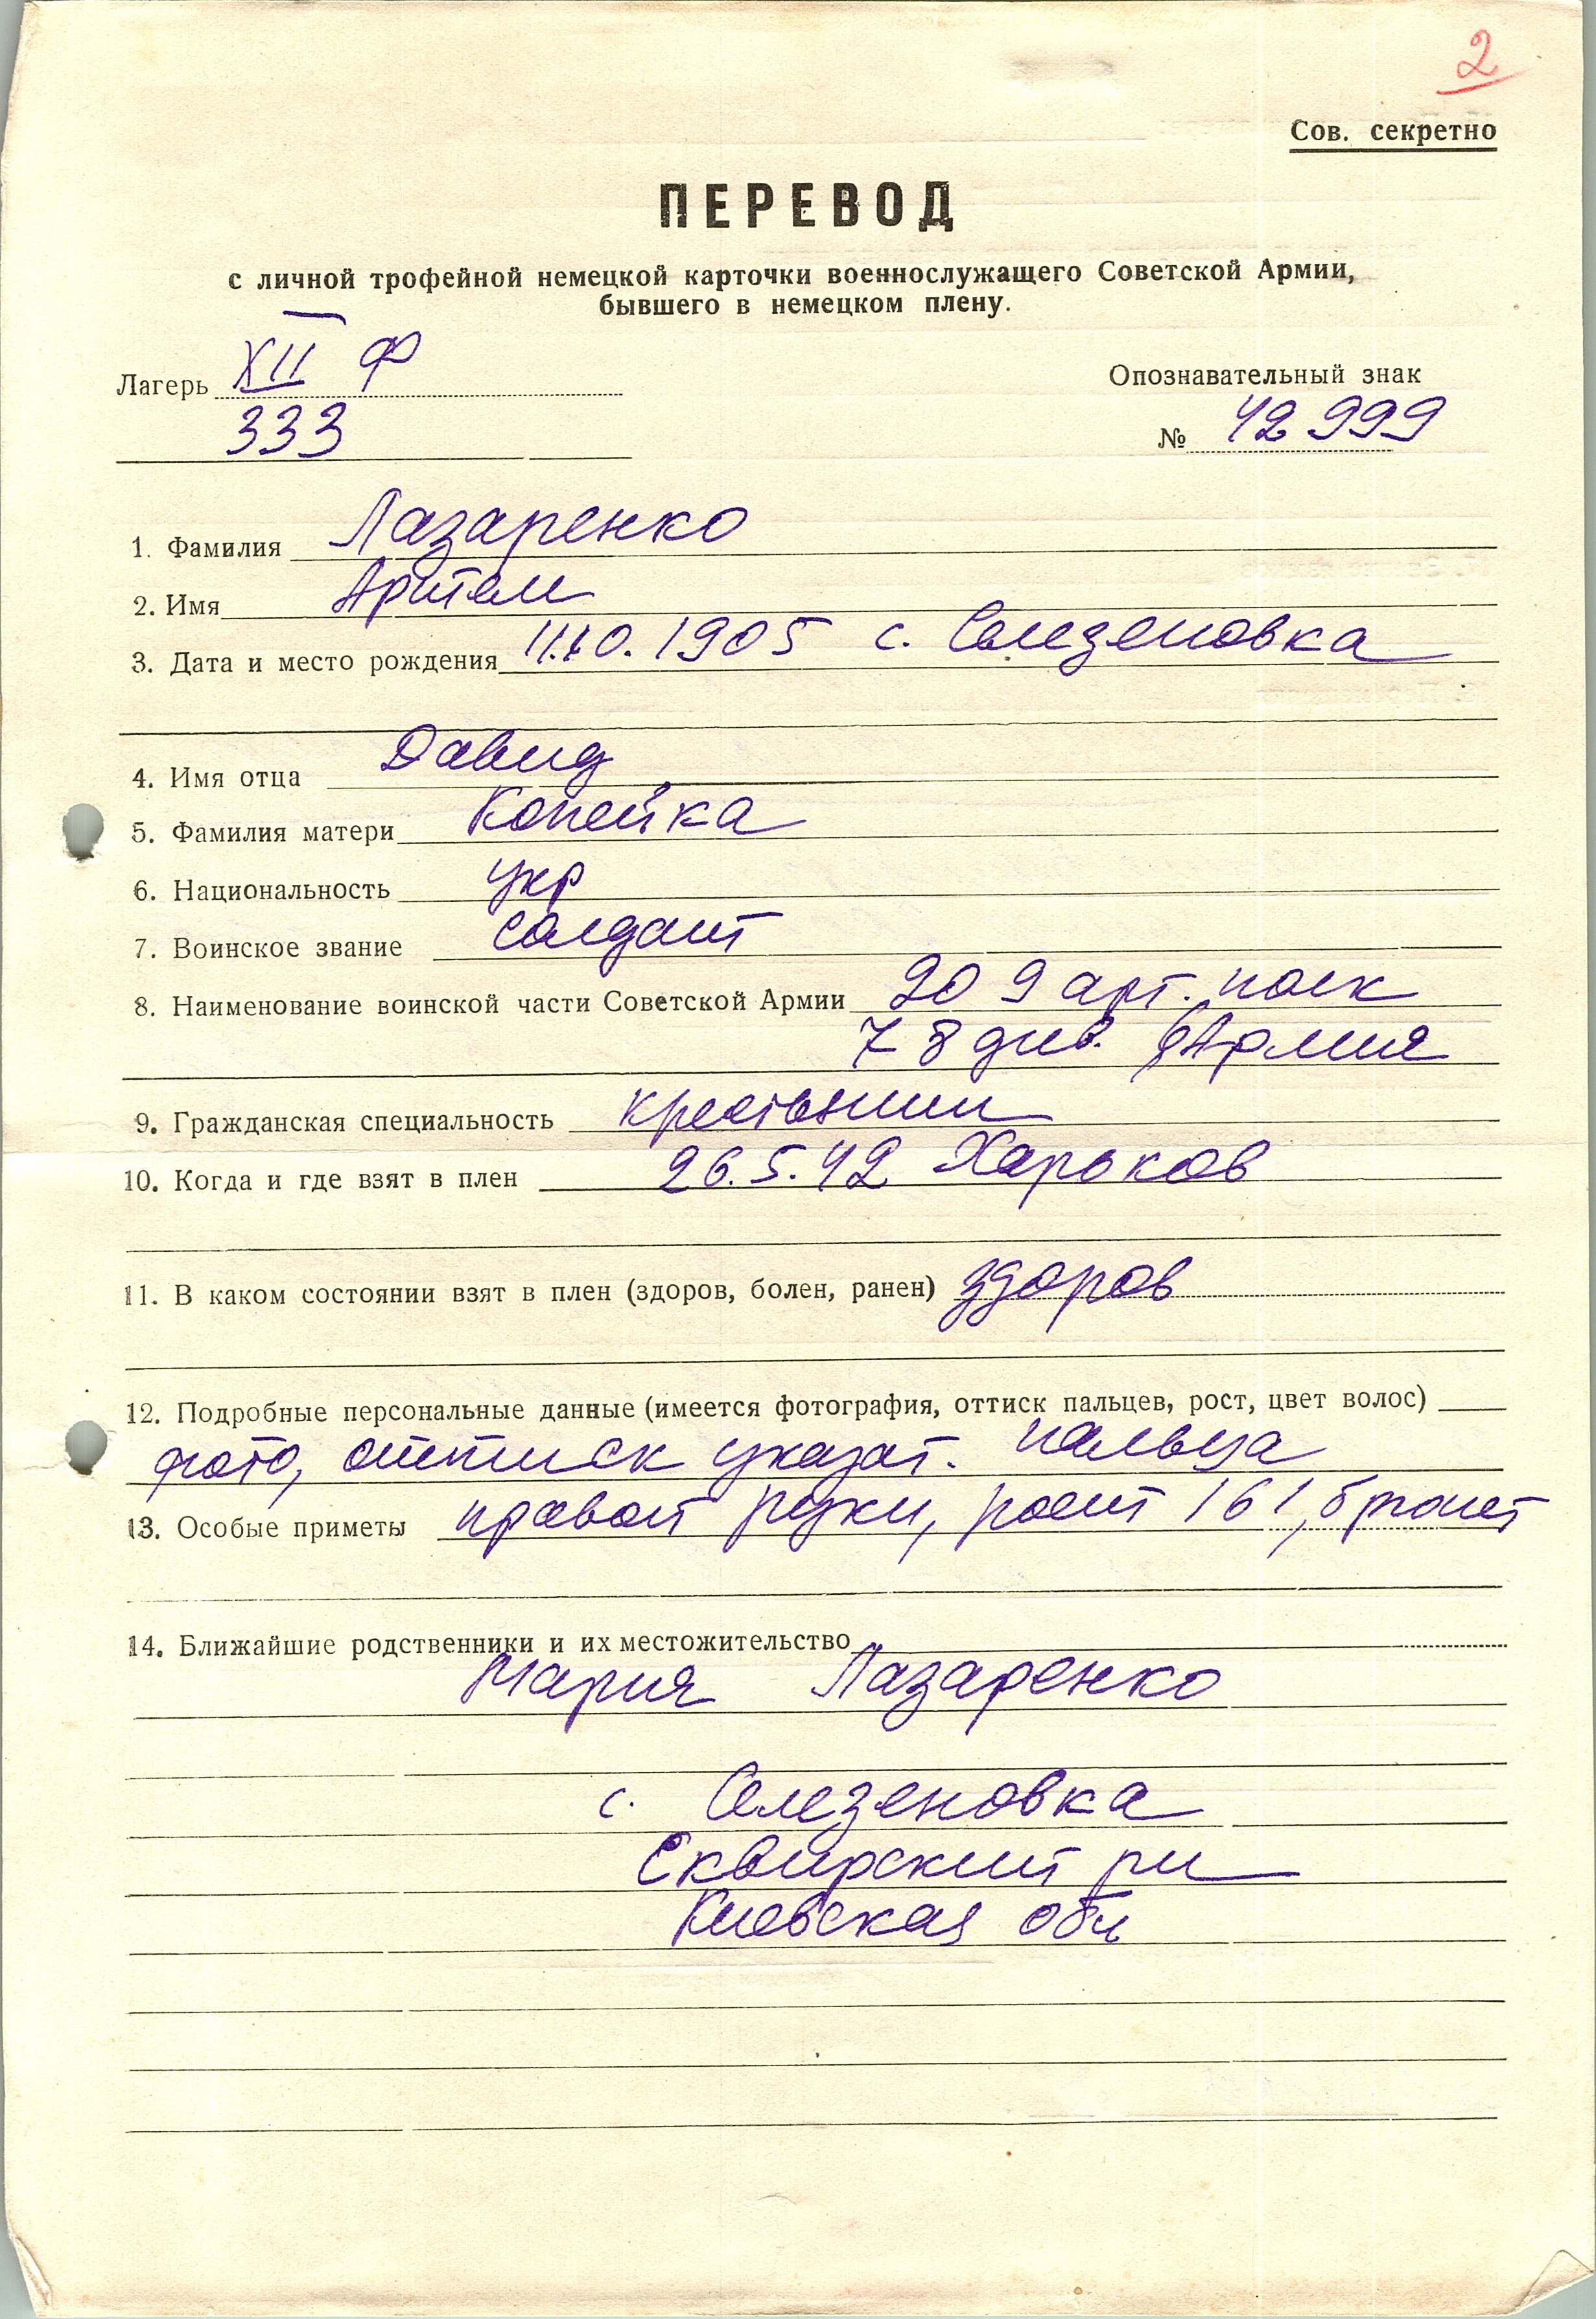 2
Сов. секретно
ПЕРЕВОД
с личной трофейной немецкой карточки военнослужащего Советской Армии,
бывшего в немецком плену.
Лагерь XII Ф
333
Опознавательный знак
№ 42999
1. Фамилия Лазаренко
2. Имя Артем
3. Дата и место рождения 11.10.1905 с. Селезеновка
4. Имя отца Давид
5. Фамилия матери Копейка
6. Национальность укр
7. Воинское звание солдат
8. Наименование воинской части Советской Армии 209 арт. полк
78 див. Армия
9. Гражданская специальность крестьянин
10. Когда и где взят в плен 26.5.42 Харьков
11. В каком состоянии взят в плен (здоров, болен, ранен) здоров
12. Подробные персональные данные (имеется фотография, оттиск пальцев, рост, цвет волос)
фото, оттиск указат. пальца
13. Особые приметы правой руки, рост 161, брюнет
14. Ближайшие родственники и их местожительство
Мария Лазаренко
с. Селезеновка
Сквирский рн
Киевская обл